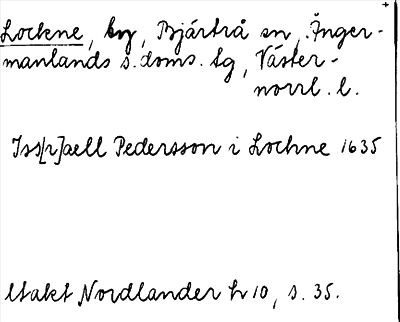 Lockne, by, Bjärtrå sn, Ånger-
manlands s. doms. tg, Väster-
norrl. l.
Iss[r]aell Pedersson i Lochne 1635
Utakt Nordlander h 10, s. 35.